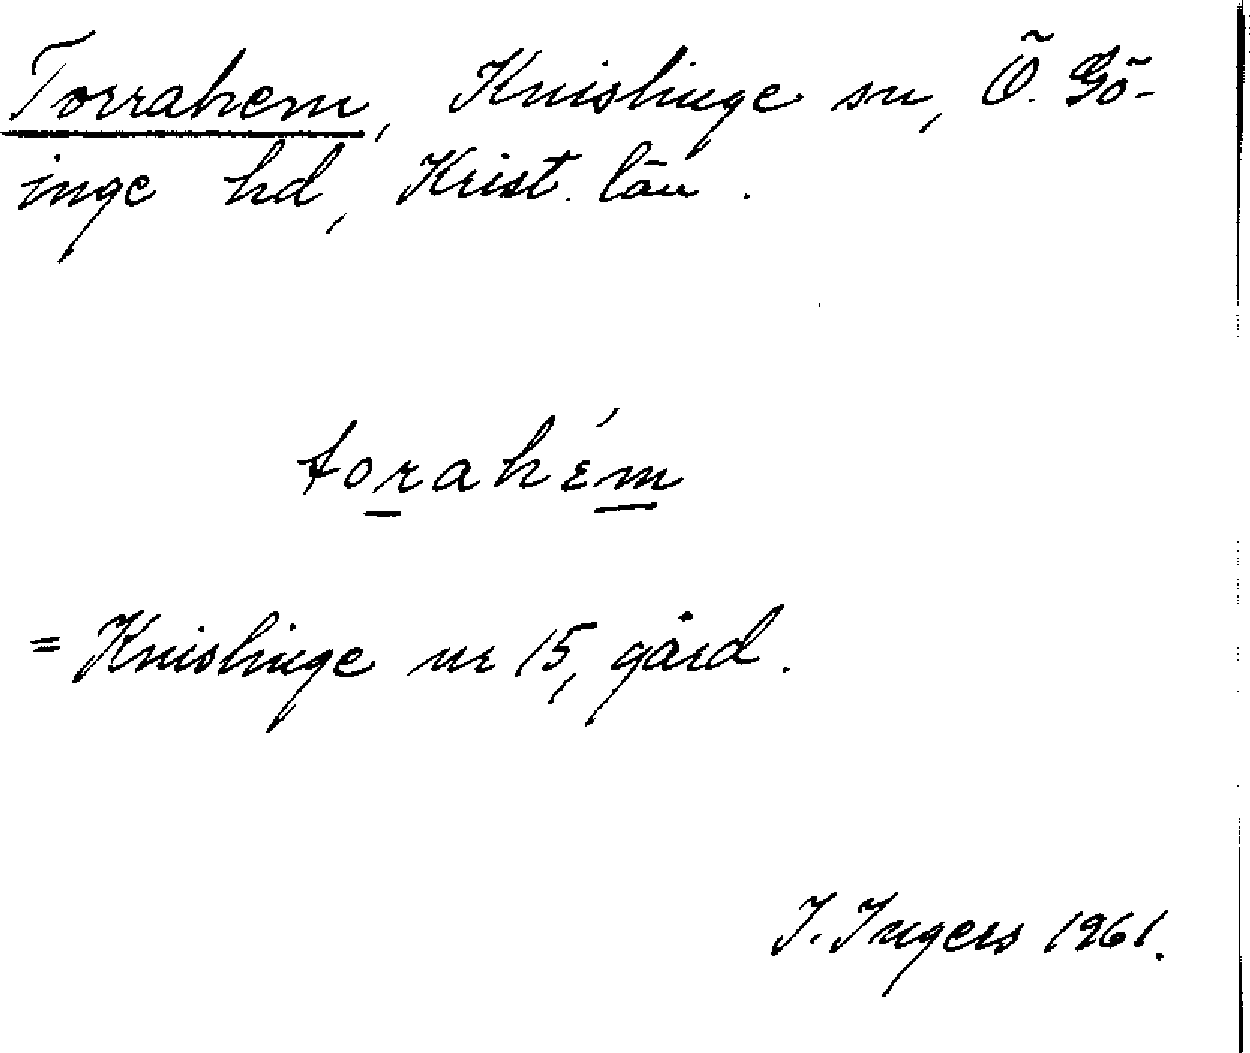 Torrahem, Knislinge sn, Ö. Gö-
inge hd, Krist. län.
torahém
= Knislinge nr 15, gård.
I. Ingers 1961.